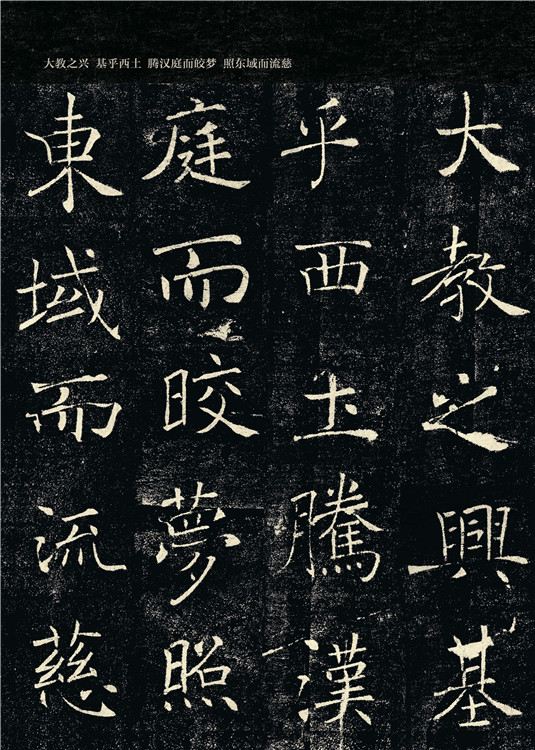 大教之兴 基乎西土 腾汉庭而皎梦 照东域而流慈
大教之興基
乎西土騰漢
庭而皎夢照
東域而流慈